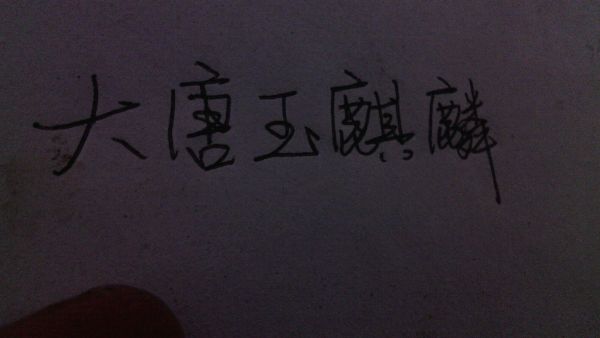 大唐玉麒麟